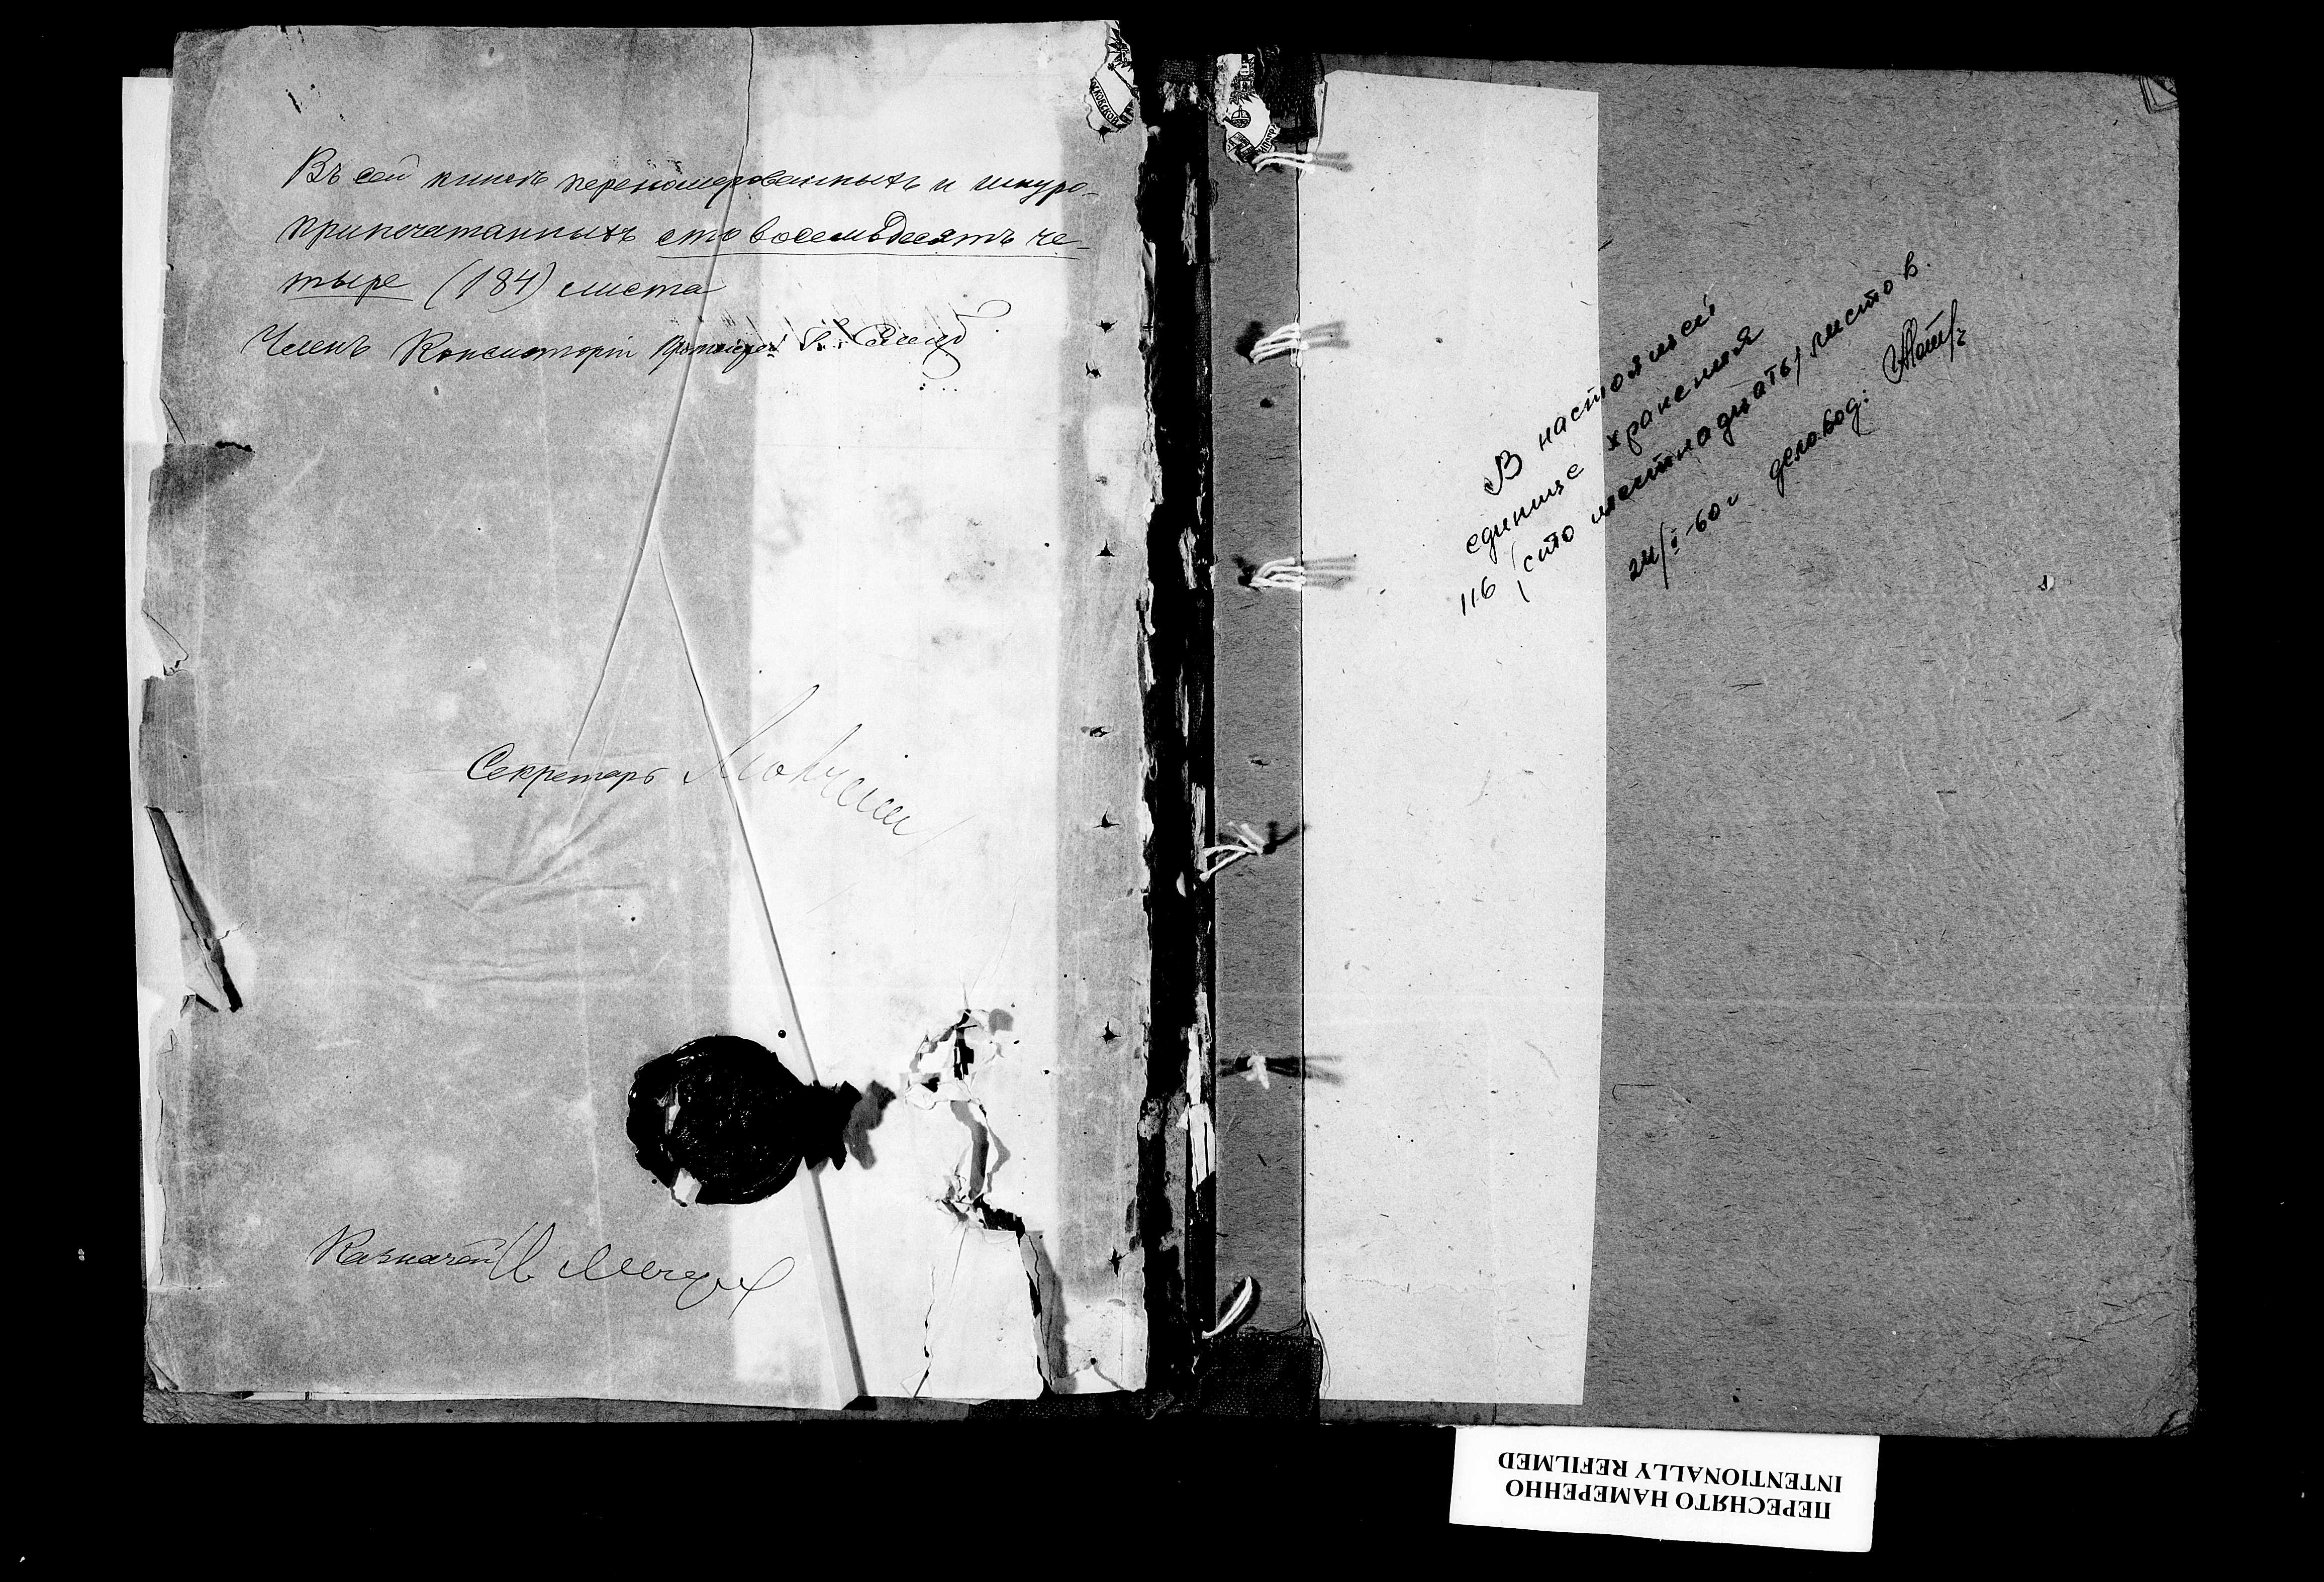 Въ сей книгѣ перенумерованныхъ и шнуро-
припечатанныхъ сто восемьдесятъ че-
тыре (184) листа
Членъ Консисторіи Протоіерей
Секретарь
Казначей
В настоящей
единице хранения
116 (сто шестнадцать) листов.
24/I-60 г деловод:
ПЕРЕСНЯТО НАМЕРЕННО
INTENTIONALLY REFILMED